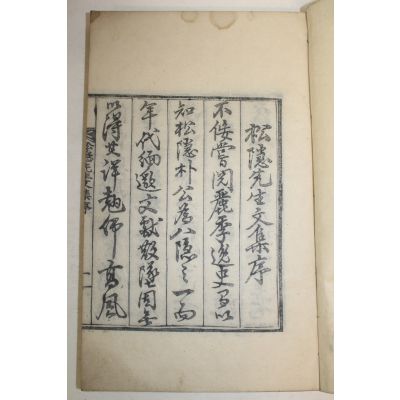 松隱先生文集序
不佞嘗閱麗季逸史獨以
知松隱朴公爲八隱之一而
年代緬邈文獻散墜固無
以得其詳翹仰高風
松隱先生文集序 一